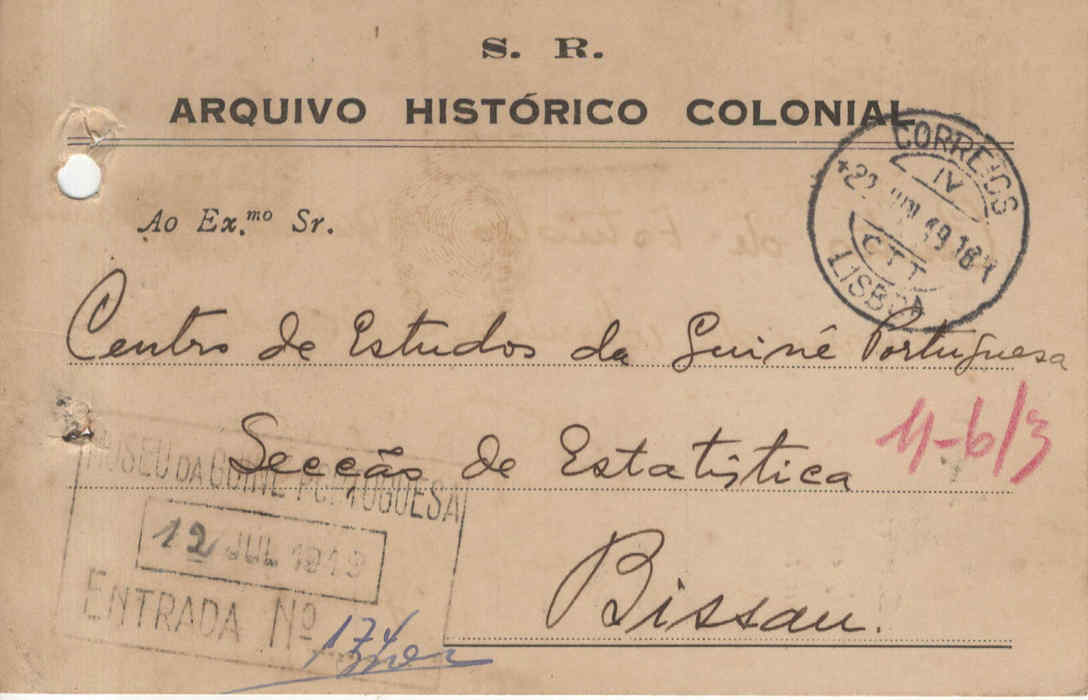 S. R.
ARQUIVO HISTÓRICO COLONIAL
CORREIOS
IV
CTT
LISBOA
Ao Ex.mo Sr.
Centro de Estudos da Guiné Portuguesa
Secção de Estatística
11-6/3
Bissau.
MUSEU DA GUINÉ PORTUGUESA
12 JUL 1949
ENTRADA Nº 174